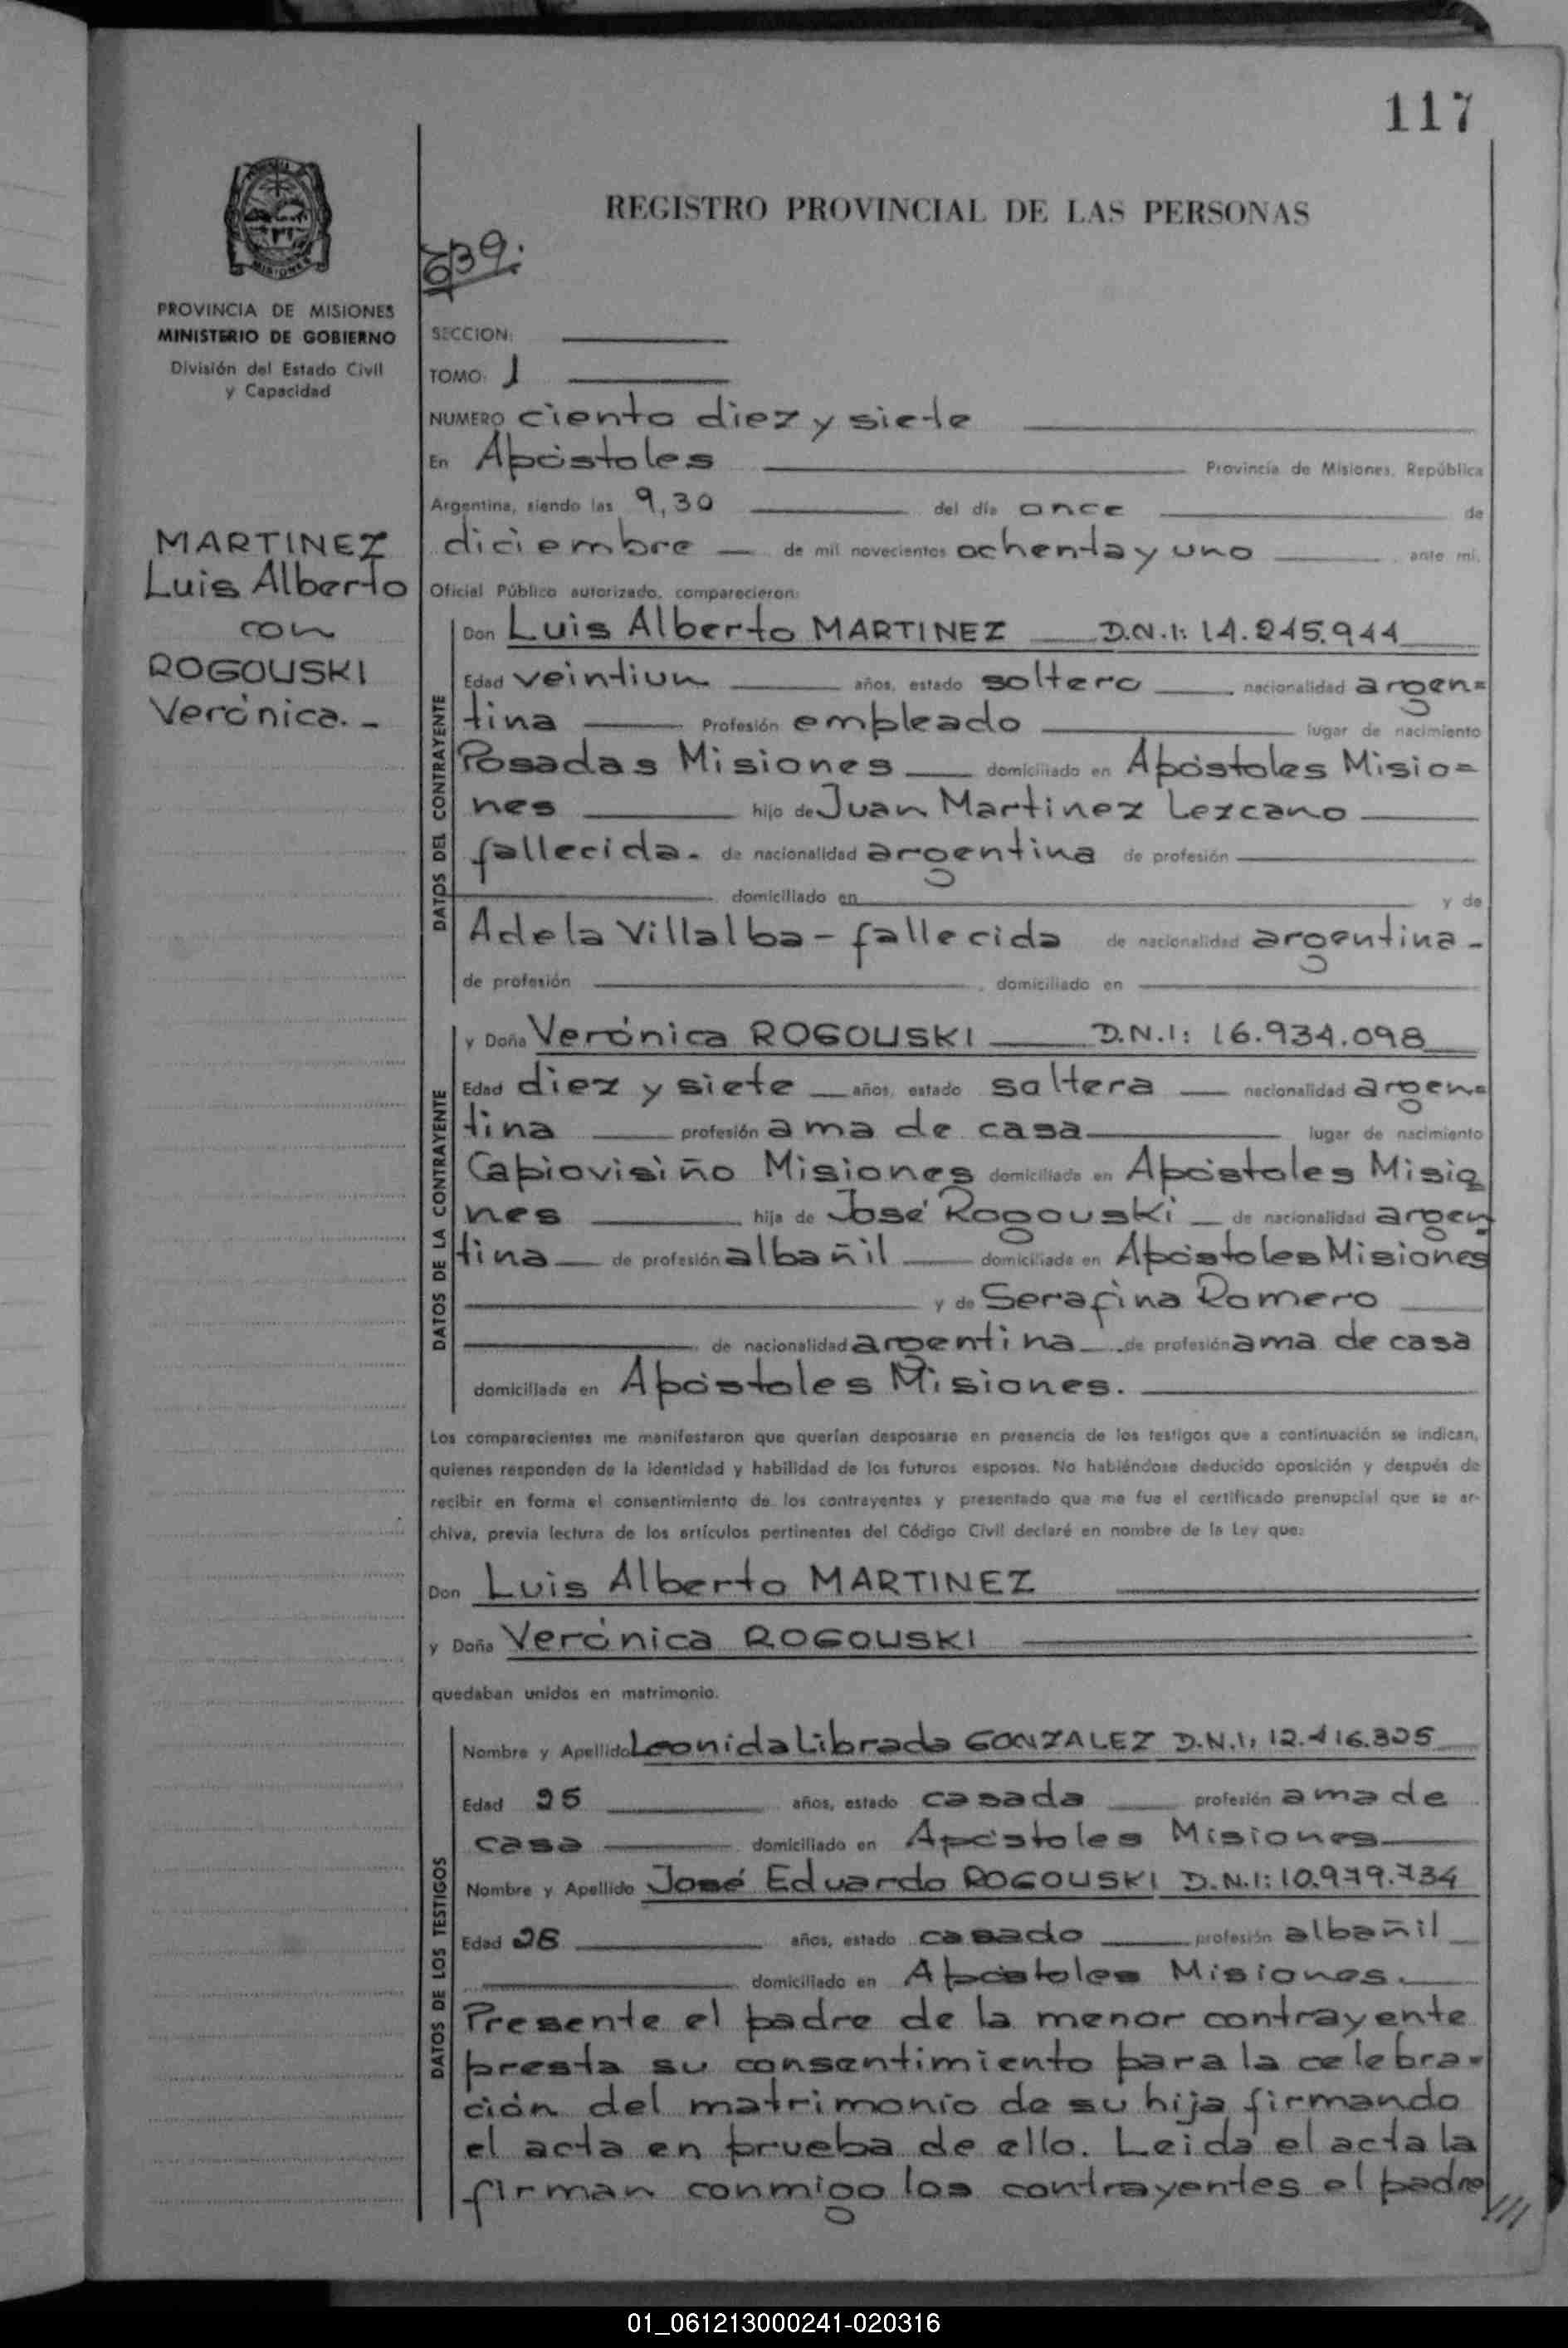 117
REGISTRO PROVINCIAL DE LAS PERSONAS
639.
PROVINCIA DE MISIONES
MINISTERIO DE GOBIERNO
División del Estado Civil
y Capacidad
MARTINEZ
Luis Alberto
con
ROGOUSKI
Verónica. -
SECCION:
TOMO: 1
NUMERO ciento diez y siete
En Apóstoles Provincia de Misiones, República
Argentina, siendo las 9,30 del día once de
diciembre de mil novecientos ochenta y uno ante mi,
Oficial Público autorizado, comparecieron:
DATOS DEL CONTRAYENTE
Don Luis Alberto MARTINEZ D.N.I: 14.245.944
Edad veintiun años, estado soltero nacionalidad argen=
tina Profesión empleado lugar de nacimiento
Posadas Misiones domiciliado en Apóstoles Misio=
nes hijo de Juan Martinez Lezcano
fallecida. de nacionalidad argentina de profesión
domiciliado en y de
Adela Villalba - fallecida de nacionalidad argentina -
de profesión , domiciliado en
DATOS DE LA CONTRAYENTE
y Doña Verónica ROGOUSKI D.N.I: 16.934.098
Edad diez y siete años, estado soltera nacionalidad argen=
tina profesión ama de casa lugar de nacimiento
Capiovisiño Misiones domiciliada en Apóstoles Misio
nes hija de José Rogouski de nacionalidad argen
tina de profesión albañil domiciliado en Apóstoles Misiones
y de Serafina Romero
de nacionalidad argentina de profesión ama de casa
domiciliada en Apóstoles Misiones.
Los comparecientes me manifestaron que querían desposarse en presencia de los testigos que a continuación se indican,
quienes responden de la identidad y habilidad de los futuros esposos. No habiéndose deducido oposición y después de
recibir en forma el consentimiento de los contrayentes y presentado que me fue el certificado prenupcial que se ar-
chiva, previa lectura de los artículos pertinentes del Código Civil declaré en nombre de la Ley que:
Don Luis Alberto MARTINEZ
y Doña Verónica ROGOUSKI
quedaban unidos en matrimonio.
DATOS DE LOS TESTIGOS
Nombre y Apellido Leonida Librada GONZALEZ D.N.I:
Edad 25 años, estado casada profesión ama de
casa domiciliado en Apóstoles Misiones
Nombre y Apellido José Eduardo ROGOUSKI D.N.I: 10.979.734
Edad años, estado casado profesión albañil
domiciliado en Apóstoles Misiones.
Presente el padre de la menor contrayente
presta su consentimiento para la celebra=
ción del matrimonio de su hija firmando
el acta en prueba de ello. Leida el acta la
firman conmigo los contrayentes el padre ///
01_061213000241-020316